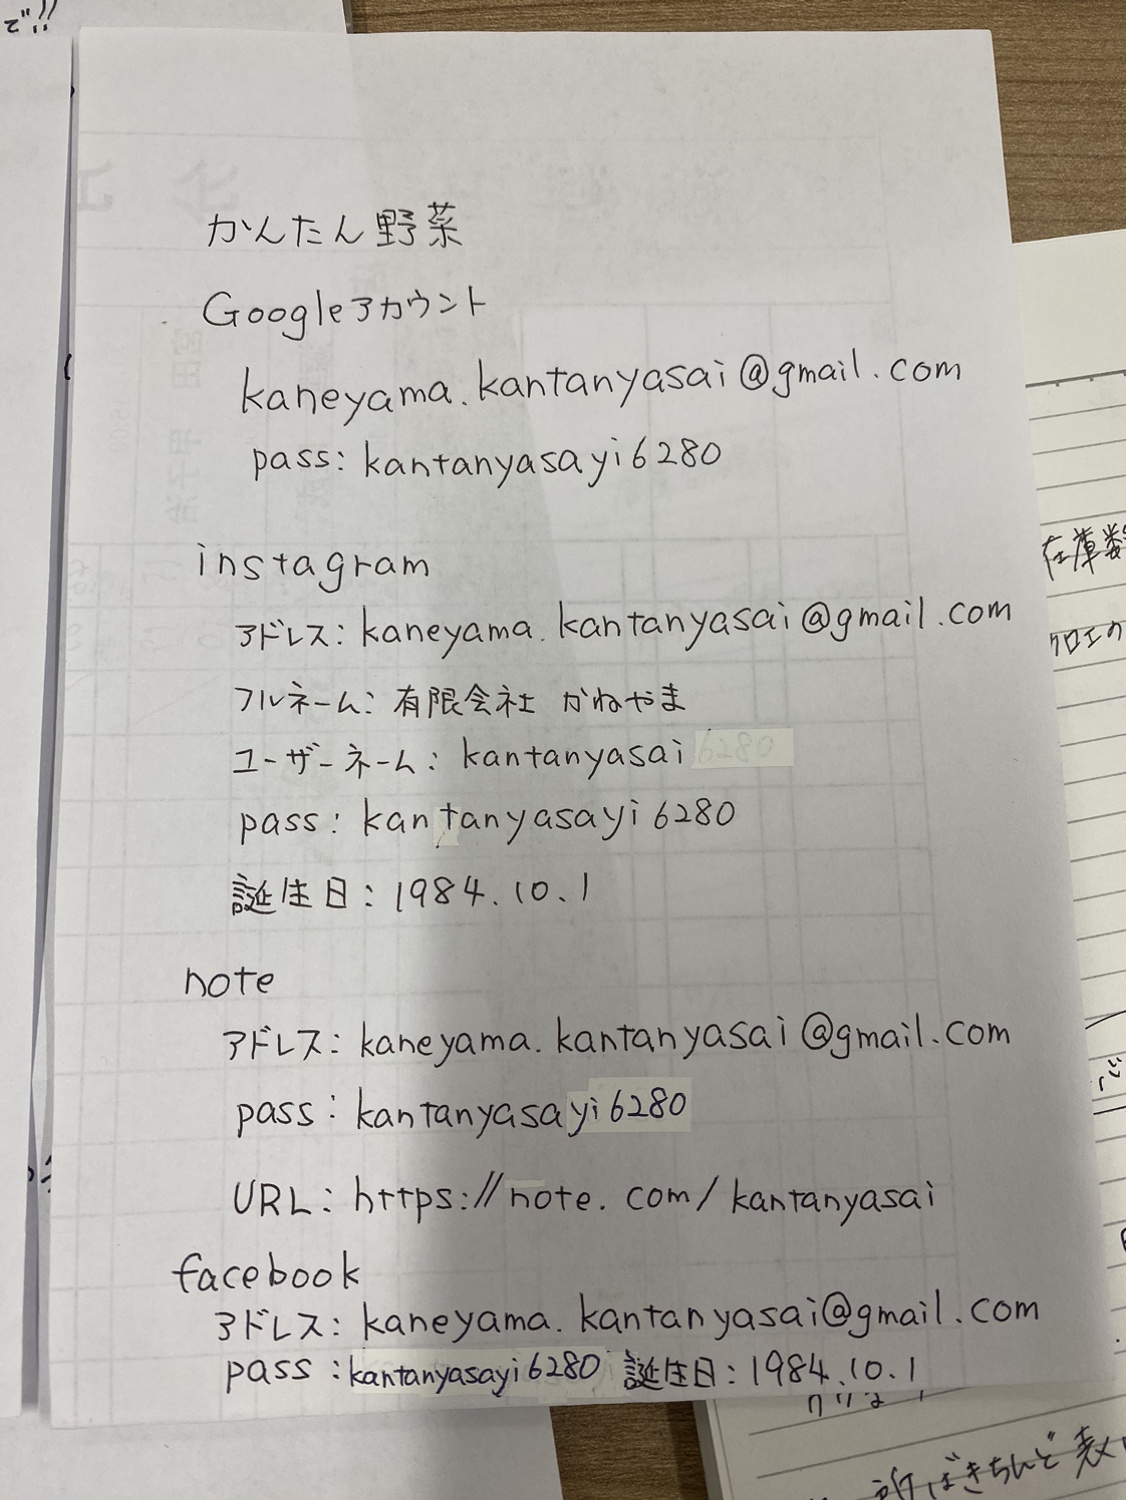 かんたん野菜
Googleアカウント
kaneyama.kantanyasai@gmail.com
pass: kantanyasayi6280
instagram
アドレス: kaneyama.kantanyasai@gmail.com
フルネーム: 有限会社 かねやま
ユーザーネーム: kantanyasai
pass: kantanyasayi6280
誕生日: 1984.10.1
note
アドレス: kaneyama.kantanyasai@gmail.com
pass: kantanyasayi6280
URL: https://note.com/kantanyasai
facebook
アドレス: kaneyama.kantanyasai@gmail.com
pass: kantanyasayi6280 誕生日: 1984.10.1
在庫数
クロエク